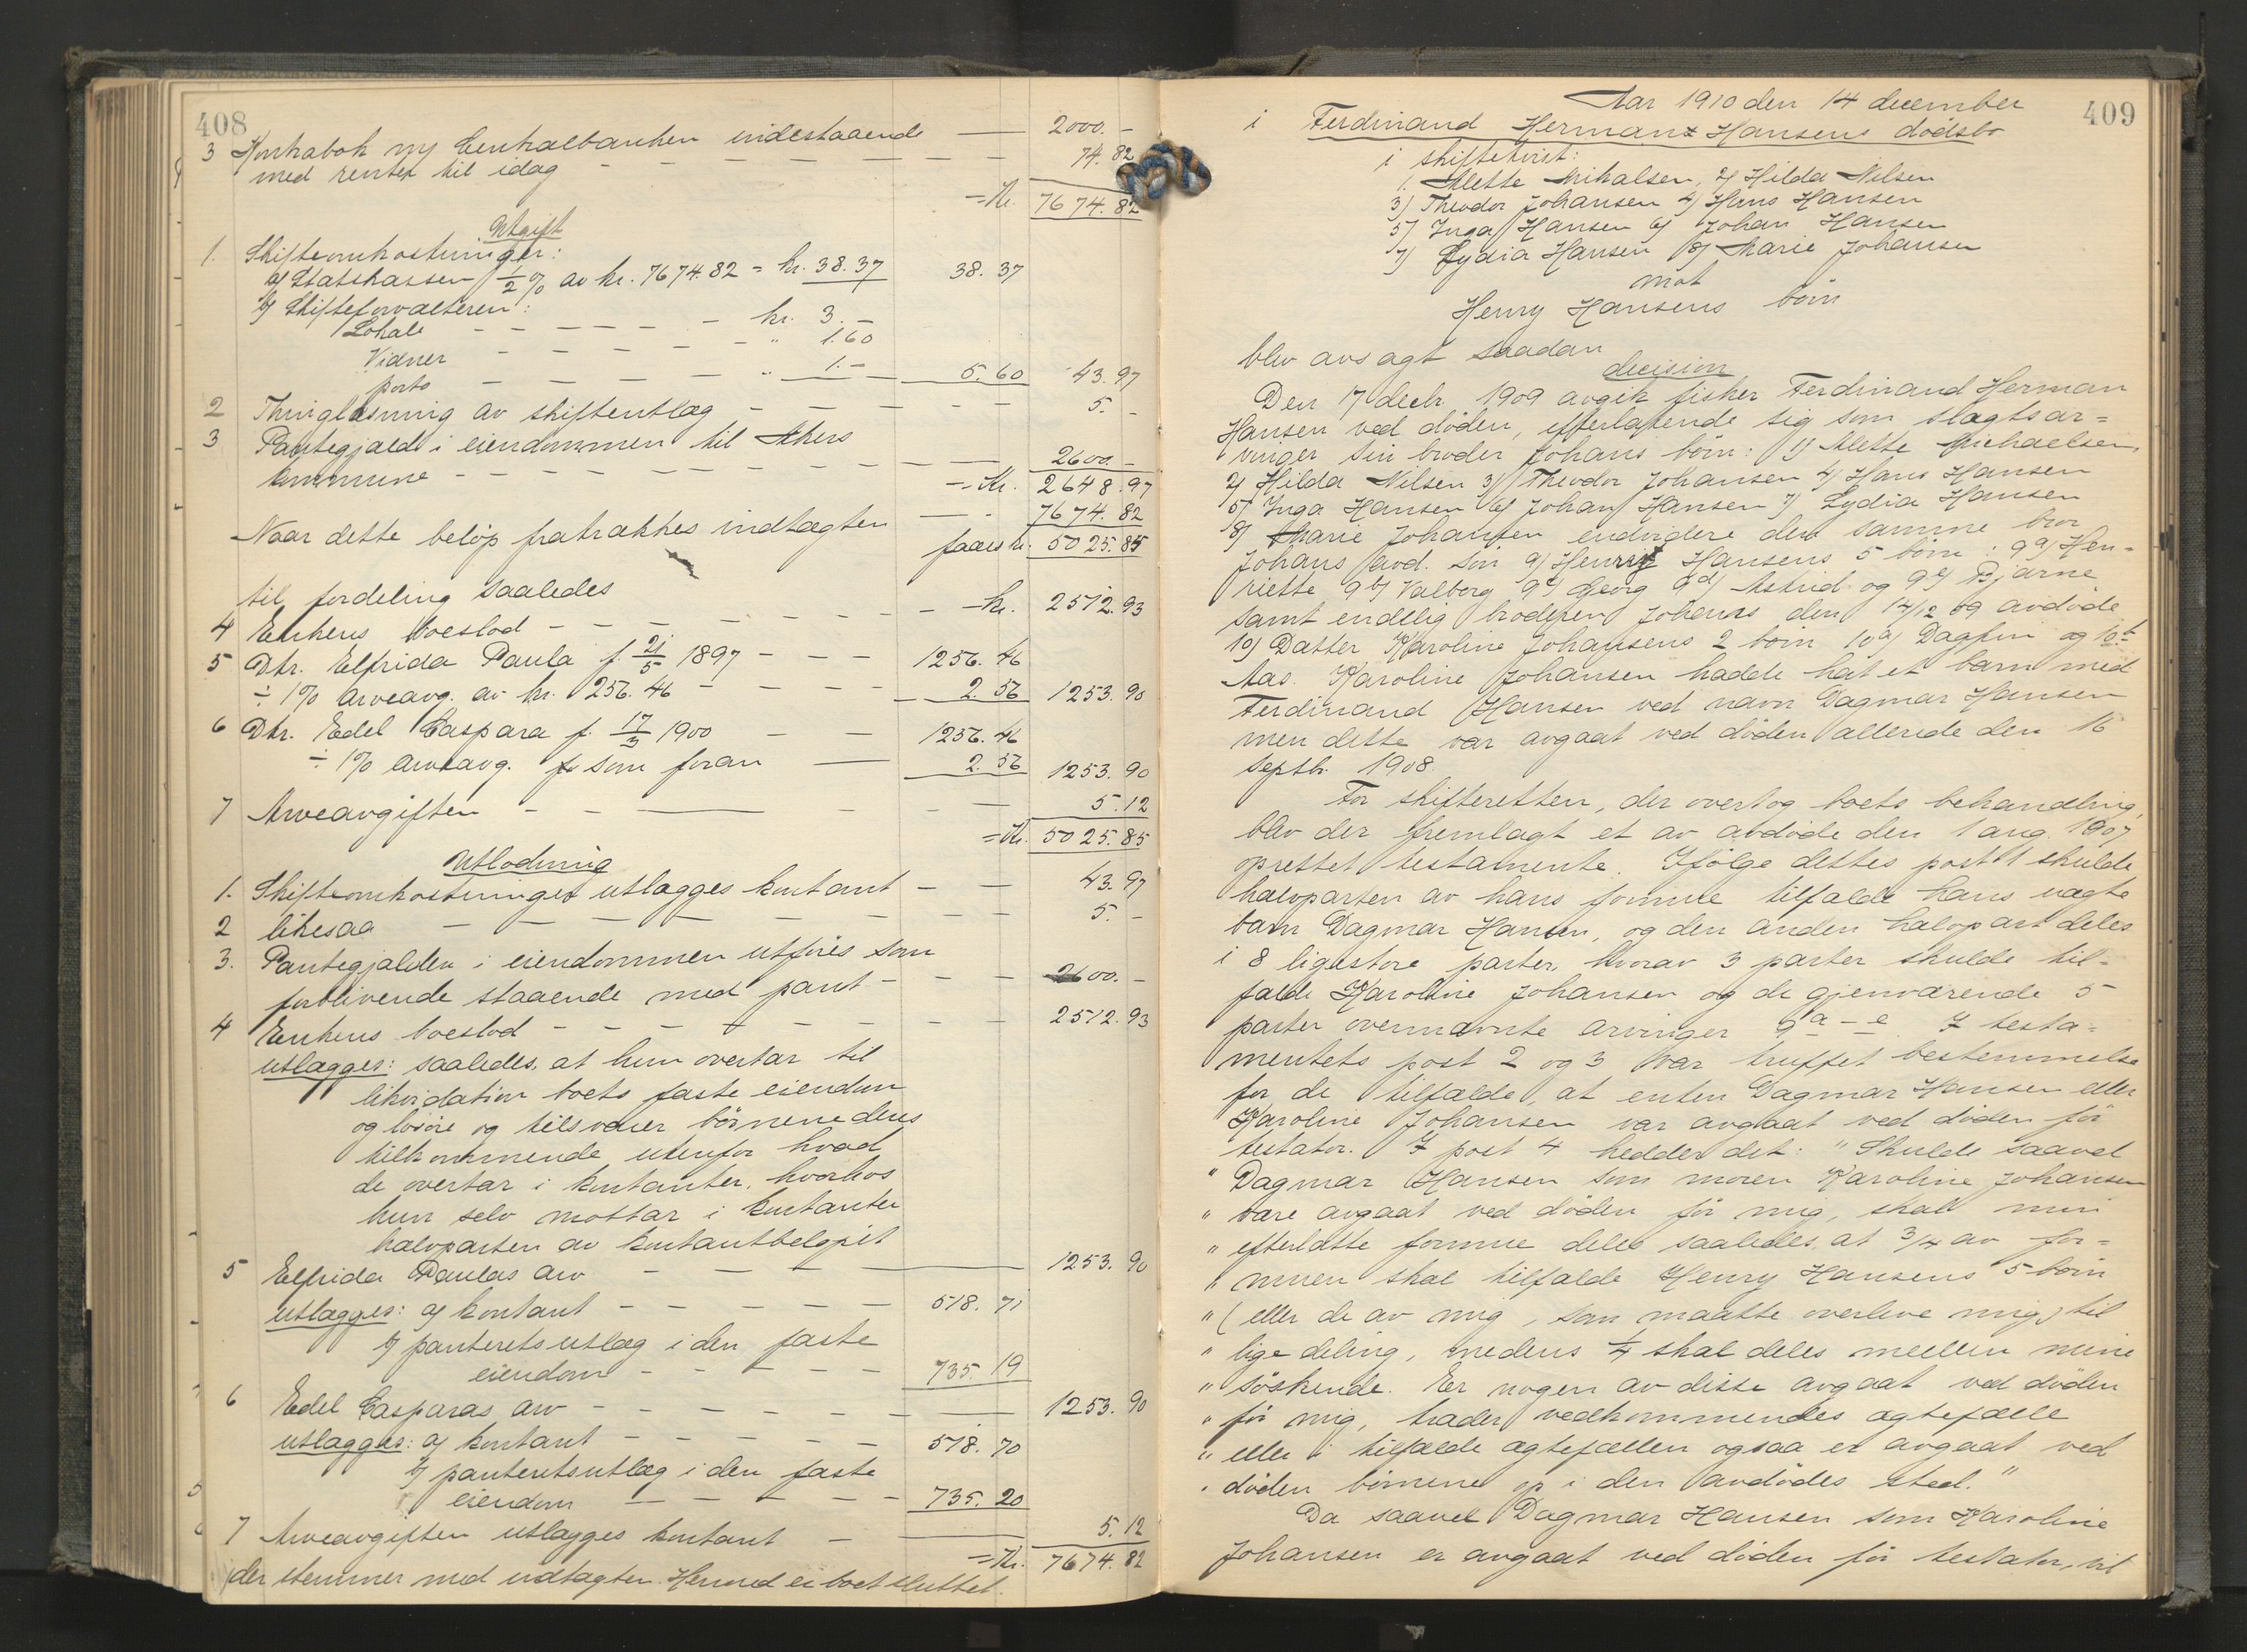 408
3 Kontrabok m/ Centralbanken indestaaende — 2000.-
med renter til idag - - - - - - - 74.82
=Kr. 7674.82
Utgift
1. Skifteomkostninger:
a/ Statskassen 1/2 % av kr. 7674.82 = kr. 38.37 38.37
b/ Skifteforvalteren:
Lokale - - - - - kr. 3.-
Vidner - - - - - " 1.60
porto - - - - - " 1.- 5.60 43.97
2 Thinglæsning av skifteutlæg - - - - - 5.-
3 Pantegjæld i eiendommen til Akers
kommune - - - - - - - 2600.-
=Kr. 2648.97
Naar dette beløp fratrækkes indtægten — 7674.82
faaes kr. 5025.85
til fordeling saaledes
4 Enkens boeslod - - - - - - - kr. 2512.93
5 Dtr. Elfrida Paula f. 21/5 1897 - - - 1256.46
÷ 1% arveavg. av kr. 256.46 - - - - 2.56 1253.90
6 Dtr. Edel Caspara f. 17/3 1900 - - 1256.46
÷ 1% arveavg. som foran — 2.56 1253.90
7 Arveavgiften - - — - - - 5.12
=Kr. 5025.85
Utlodning
1. Skifteomkostninger utlægges kontant - - 43.97
2 likesaa - - - - - - - 5.-
3. Pantegjælden i eiendommen utføres som
forblivende staaende med pant - - - - 2600.-
4 Enkens boeslod - - - - - - - - 2512.93
utlægges: saaledes, at hun overtar til
likvidation boets faste eiendom
og løsøre og tilsvarer børnene deres
tilkommende utenfor hvad
de overtar i kontanter, hvorhos
hun selv mottar i kontanter
halvparten av kontantbeløpet
5 Elfrida Paulas arv - - - — 1253.90
utlægges: a/ kontant - - - - - 518.71
b/ panteretsutlæg i den faste
eiendom - - - - - 735.19
6 Edel Casparas arv - - - - - — 1253.90
utlægges: a/ kontant - - - - - 518.70
b/ panteretsutlæg i den faste
eiendom - - - - - 735.20
7 Arveavgiften utlægges kontant - — 5.12
=Kr. 7674.82
der stemmer med indtægten. Hermed er boet sluttet.
409
Aar 1910 den 14 december
i Ferdinand Herman Hansens dødsbo
i skiftetvist:
1. Alette Mikalsen, 2/ Hilda Nilsen
3/ Theodor Johansen 4/ Hans Hansen
5/ Inga Hansen 6/ Johan Hansen
7/ Lydia Hansen 8/ Marie Johansen
mot
Henry Hansens børn
blev avsagt saadan
decision
Den 17 decbr. 1909 avgik fisker Ferdinand Herman
Hansen ved døden, efterlatende sig som slagtsar=
vinger sin broder Johans børn: 1/ Alette Michaelsen,
2/ Hilda Nilsen 3/ Theodor Johansen 4/ Hans Hansen
5/ Inga Hansen 6/ Johan Hansen 7/ Lydia Hansen
8/ Marie Johansen endvidere den samme bror
Johans avd. søn 9/ Henry Hansens 5 børn: 9a/ Hen=
riette 9b/ Valborg 9c/ Georg 9d/ Astrid og 9e/ Bjarne
samt endelig broderen Johans den 17/12 09 avdøde
10/ Datter Karoline Johansens 2 børn 10a/ Dagfin og 10b
Aas. Karoline Johansen hadde hat et barn med
Ferdinand Hansen ved navn Dagmar Hansen
men dette var avgaat ved døden allerede den 16
septbr. 1908.
For skifteretten, der overtog boets behandling,
blev der fremlagt et av avdøde den 1 aug. 1907
oprettet testamente. Ifølge dettes post 1 skulde
halvparten av hans formue tilfalde hans uægte
barn Dagmar Hansen, og den anden halvpart deles
i 8 ligestore parter, hvorav 3 parter skulde til=
falde Karoline Johansen og de gjenværende 5
parter ovennævnte arvinger 9 a - e. I testa=
mentets post 2 og 3 var truffet bestemmelse
for de tilfælde, at enten Dagmar Hansen eller
Karoline Johansen var avgaat ved døden før
testator. I post 4 hedder det: "Skulde saavel
" Dagmar Hansen som moren Karoline Johansen
" være avgaat ved døden før mig, skal min
" efterlatte formue deles saaledes, at 3/4 av for=
" muen skal tilfalde Henry Hansens 5 børn
" (eller de av mig, som maatte overleve mig) til
" lige deling, medens 1/4 skal deles mellem mine
" søskende. Er nogen av disse avgaat ved døden
" før mig, træder vedkommendes ægtefælle
" eller i tilfælde ægtefællen ogsaa er avgaat ved
" døden børnene op i den avdødes sted."
Da saavel Dagmar Hansen som Karoline
Johansen er avgaat ved døden før testator, vil